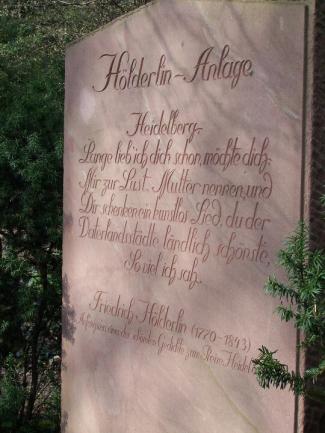 Hölderlin-Anlage
Heidelberg-
Lange lieb ich dich schon, möchte dich,
Mir zur Lust, Mutter nennen, und
Dir schenken ein kunstlos Lied, du der
Vaterlandsstädte ländlich schönste,
So viel ich sah.
Friedrich Hölderlin (1770-1843)